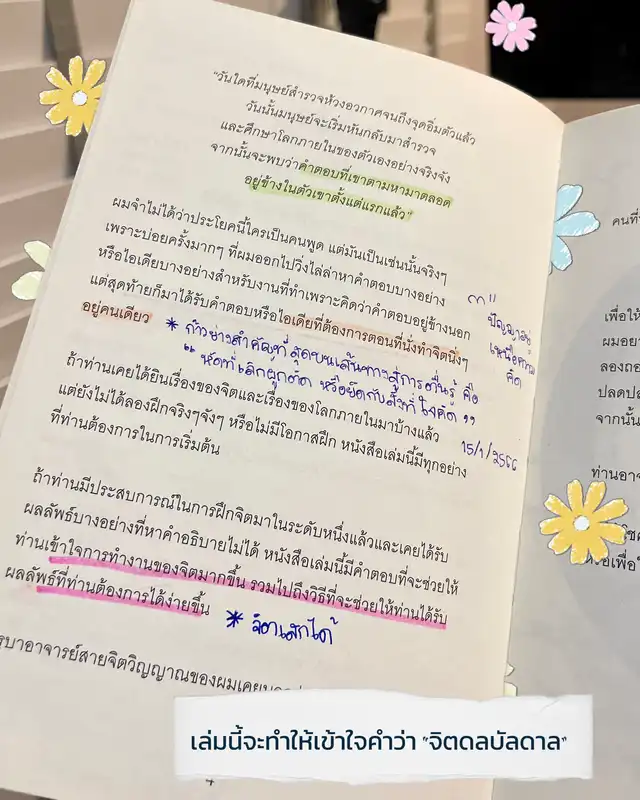 "วันใดที่มนุษย์สำรวจห้วงอวกาศจนถึงจุดอิ่มตัวแล้ว
วันนั้นมนุษย์จะเริ่มหันกลับมาสำรวจ
และศึกษาโลกภายในของตัวเองอย่างจริงจัง
จากนั้นจะพบว่าคำตอบที่เขาตามหามาตลอด
อยู่ข้างในตัวเขาตั้งแต่แรกแล้ว"
ผมจำไม่ได้ว่าประโยคนี้ใครเป็นคนพูด แต่มันเป็นเช่นนั้นจริงๆ
เพราะบ่อยครั้งมากๆ ที่ผมออกไปวิ่งไล่ล่าหาคำตอบบางอย่าง
หรือไอเดียบางอย่างสำหรับงานที่ทำเพราะคิดว่าคำตอบอยู่ข้างนอก
แต่สุดท้ายก็มาได้รับคำตอบหรือไอเดียที่ต้องการตอนที่นั่งทำจิตนิ่งๆ
อยู่คนเดียว
* ก้าวย่างสำคัญที่สุดบนเส้นทางสู่การตื่นรู้ คือ
" หัดที่เลิกผูกติด หรือยึดกับสิ่งที่ใจคิด "
ปัญญาอยู่
เหนือความ
คิด
15/1/2566
ถ้าท่านเคยได้ยินเรื่องของจิตและเรื่องของโลกภายในมาบ้างแล้ว
แต่ยังไม่ได้ลองฝึกจริงๆจังๆ หรือไม่มีโอกาสฝึก หนังสือเล่มนี้มีทุกอย่าง
ที่ท่านต้องการในการเริ่มต้น
ถ้าท่านมีประสบการณ์ในการฝึกจิตมาในระดับหนึ่งแล้วและเคยได้รับ
ผลลัพธ์บางอย่างที่หาคำอธิบายไม่ได้ หนังสือเล่มนี้มีคำตอบที่จะช่วยให้
ท่านเข้าใจการทำงานของจิตมากขึ้น รวมไปถึงวิธีที่จะช่วยให้ท่านได้รับ
ผลลัพธ์ที่ท่านต้องการได้ง่ายขึ้น
* จิตเสกได้
รูบาอาจารย์สายจิตวิญญาณของผมเคย
คนที่
เพื่อให้
ผมอยา
ลองถอ
ปลดปล
จากนั้น
ท่านอาจ
เล่มนี้จะทำให้เข้าใจคำว่า "จิตดลบันดาล"